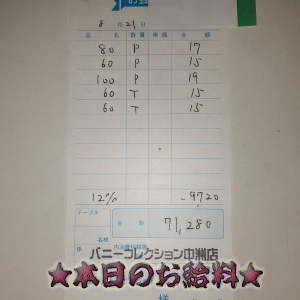 8月21日
品名 数量 単価 金額
80 P 17
60 P 15
100 P 19
60 T 15
60 T 15
12% -9720
テーブル
名様
合計 71,280
係
内消費税額等
バニーコレクション中洲店
★本日のお給料★
様